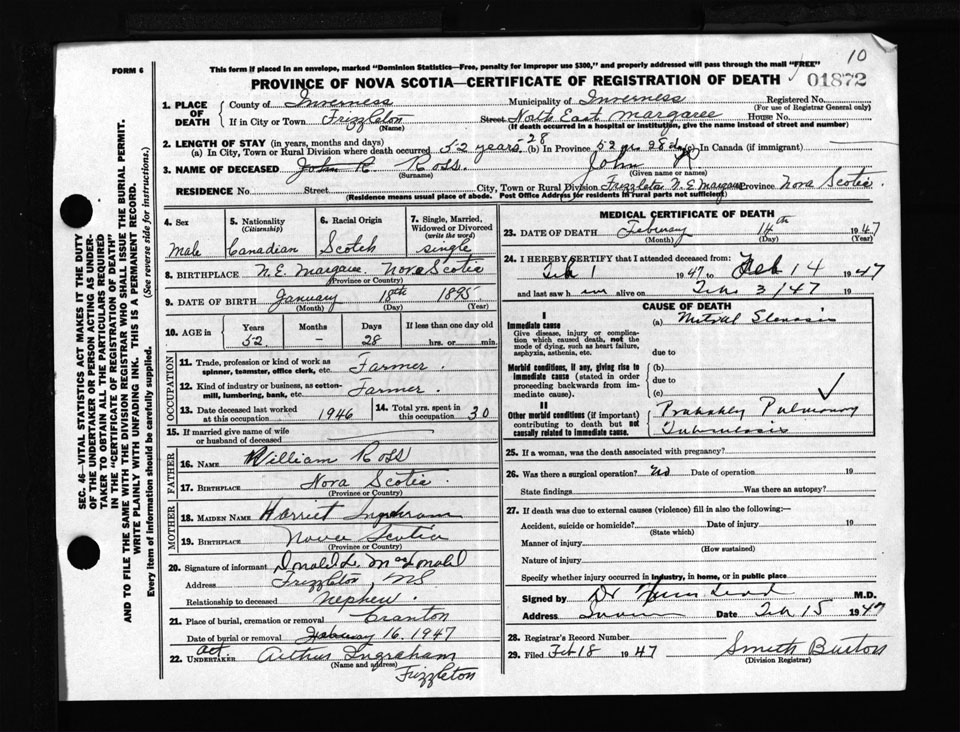 10
FORM 6
This form if placed in an envelope, marked "Dominion Statistics—Free, penalty for improper use $300," and properly addressed will pass through the mail "FREE"
PROVINCE OF NOVA SCOTIA—CERTIFICATE OF REGISTRATION OF DEATH
01872
1. PLACE OF DEATH
County of Inverness Municipality of Inverness Registered No.
(For use of Registrar General only)
If in City or Town Frizzleton Street North East Margaree House No.
(Name) (If death occurred in a hospital or institution, give the name instead of street and number)
2. LENGTH OF STAY (in years, months and days)
(a) In City, Town or Rural Division where death occurred 52 years-28 (b) In Province 52 yrs 28 days (c) In Canada (if immigrant)
3. NAME OF DECEASED John R Ross. John R
(Surname) (Given name or names)
RESIDENCE No. Street City, Town or Rural Division Frizzleton N.E. Margaree Province Nova Scotia.
(Residence means usual place of abode. Post Office Address for residents in rural parts not sufficient)
4. Sex
Male
5. Nationality
(Citizenship)
Canadian
6. Racial Origin
Scotch
7. Single, Married, Widowed or Divorced
(write the word)
single
8. BIRTHPLACE N.E. Margaree. Nova Scotia
(Province or Country)
9. DATE OF BIRTH January 18th 1895
(Month) (Day) (Year)
10. AGE in Years Months Days If less than one day old
52 – 28 hrs. or min.
OCCUPATION
11. Trade, profession or kind of work as spinner, teamster, office clerk, etc. Farmer.
12. Kind of industry or business, as cotton-mill, lumbering, bank, etc. Farmer.
13. Date deceased last worked at this occupation 1946
14. Total yrs. spent in this occupation 30
15. If married give name of wife or husband of deceased
FATHER
16. NAME William Ross
17. BIRTHPLACE Nova Scotia
(Province or Country)
MOTHER
18. MAIDEN NAME Harriet Ingraham
19. BIRTHPLACE Nova Scotia
(Province or Country)
20. Signature of informant Donald L. McDonald
Address Frizzleton, NS
Relationship to deceased nephew.
21. Place of burial, cremation or removal Cranton
Date of burial or removal February 16, 1947
22. Act. UNDERTAKER Arthur Ingraham
(Name and address)
Frizzleton
MEDICAL CERTIFICATE OF DEATH
23. DATE OF DEATH February 14th 1947
(Month) (Day) (Year)
24. I HEREBY CERTIFY that I attended deceased from:
Feb 1 1947 to Feb 14 1947
and last saw h im alive on Feb 3/47 19
CAUSE OF DEATH
I
Immediate cause
Give disease, injury or complication which caused death, not the mode of dying, such as heart failure, asphyxia, asthenia, etc.
(a) Mitral Stenosis
due to
Morbid conditions, if any, giving rise to immediate cause (stated in order proceeding backwards from immediate cause).
(b)
due to
(c)
II
Other morbid conditions (if important) contributing to death but not causally related to immediate cause.
Probably Pulmonary
Tuberculosis
25. If a woman, was the death associated with pregnancy?
26. Was there a surgical operation? No Date of operation 19
State findings Was there an autopsy?
27. If death was due to external causes (violence) fill in also the following:—
Accident, suicide or homicide? Date of injury 19
(State which)
Manner of injury
(How sustained)
Nature of injury
Specify whether injury occurred in industry, in home, or in public place
Signed by Dr M.D.
Address Date Feb 15 1947
28. Registrar's Record Number
29. Filed Feb 18 1947 Smith Burton
(Division Registrar)
SEC. 46—VITAL STATISTICS ACT MAKES IT THE DUTY
OF THE UNDERTAKER OR PERSON ACTING AS UNDER-
TAKER TO OBTAIN ALL THE PARTICULARS REQUIRED
IN THE "CERTIFICATE OF REGISTRATION OF DEATH"
AND TO FILE THE SAME WITH THE DIVISION REGISTRAR WHO SHALL ISSUE THE BURIAL PERMIT.
WRITE PLAINLY WITH UNFADING INK. THIS IS A PERMANENT RECORD.
Every item of information should be carefully supplied. (See reverse side for instructions.)